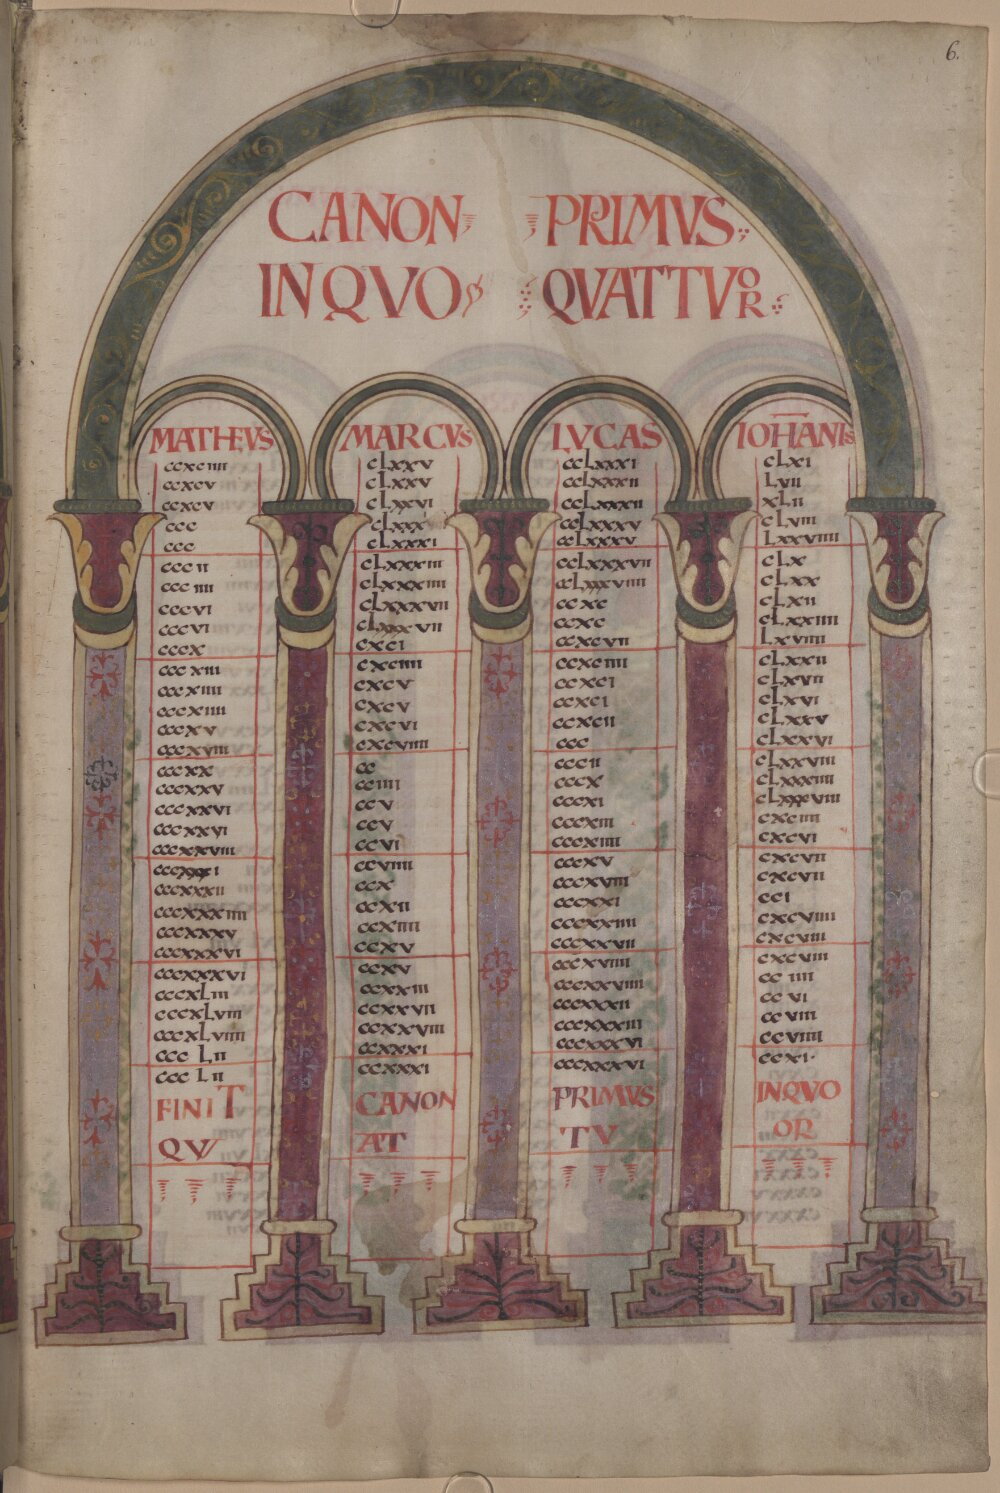 6.
CANON PRIMVS
IN QVO QVATTVOR
MATHEVS MARCVS LVCAS IOHANIS
ccxciiii cLxxv ccLxxxi cLxi
ccxcv cLxxv ccLxxxii Lvii
ccxcv cLxxvi ccLxxxii xLii
ccc cLxxx ccLxxxv cLviii
ccc cLxxxi ccLxxxv Lxxviiii
cccii cLxxxiii ccLxxxvii cLx
ccciiii cLxxxiiii ccLxxxviiii cLxx
cccvi cLxxxvii ccxc cLxii
cccvi cLxxxvii ccxc cLxxiiii
cccx cxci ccxcvii Lxviiii
cccxiii cxciiii ccxciiii cLxxii
cccxiiii cxcv ccxci cLxvii
cccxiiii cxcv ccxci cLxvi
cccxv cxcvi ccxcii cLxxv
cccxviiii cxcviiii ccc cLxxvi
cccxx cc cccii cLxxviii
cccxxv cciiii cccx cLxxxiiii
cccxxvi ccv cccxi cLxxxviii
cccxxvi ccv cccxiii cxciiii
cccxxviii ccvi cccxiiii cxcvi
cccxxxi ccviiii cccxv cxcvii
cccxxxii ccx cccxviii cxcvii
cccxxxiiii ccxii cccxxi cci
cccxxxv ccxiiii cccxxiiii cxcviiii
cccxxxvi ccxv cccxxvii cxcviii
cccxxxvi ccxv cccxviiii cxcviii
cccxLiii ccxxiii cccxxviiii cciiii
cccxLviii ccxxvii cccxxxii ccvi
cccxLviiii ccxxviii cccxxxiii ccviii
cccLii ccxxxi cccxxxvi ccviiii
cccLii ccxxxi cccxxxvi ccxi
FINIT CANON PRIMVS INQVO
QV AT TV OR